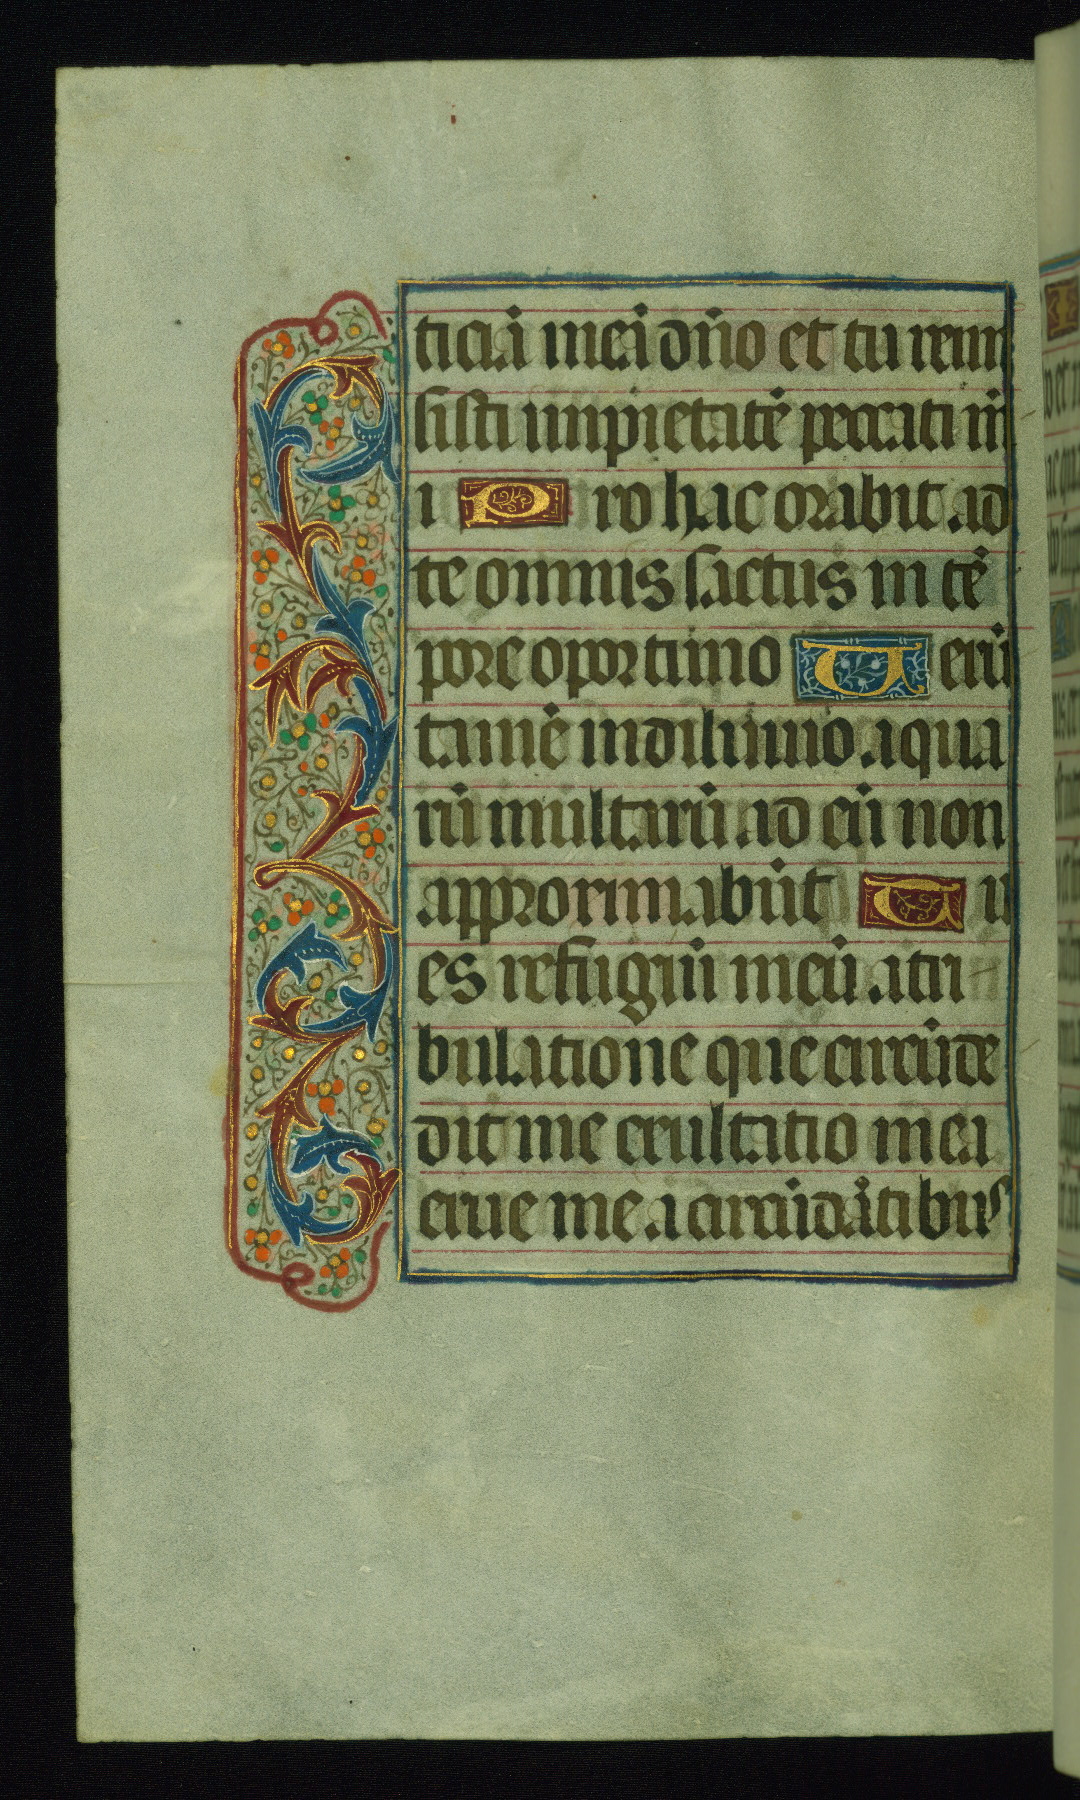 ticiā meā dño et tu remi
sisti impietatē peccati m̄
i Pro hac orabit ad
te omnis sāctus in tē
pore oportuno Uerū
tamē in diluuio aqua
rū multarū ad eū non
approximabūt Tu
es refugiū meū a tri
bulatione que circūde
dit me exultatio mea
erue me a circūdātibus